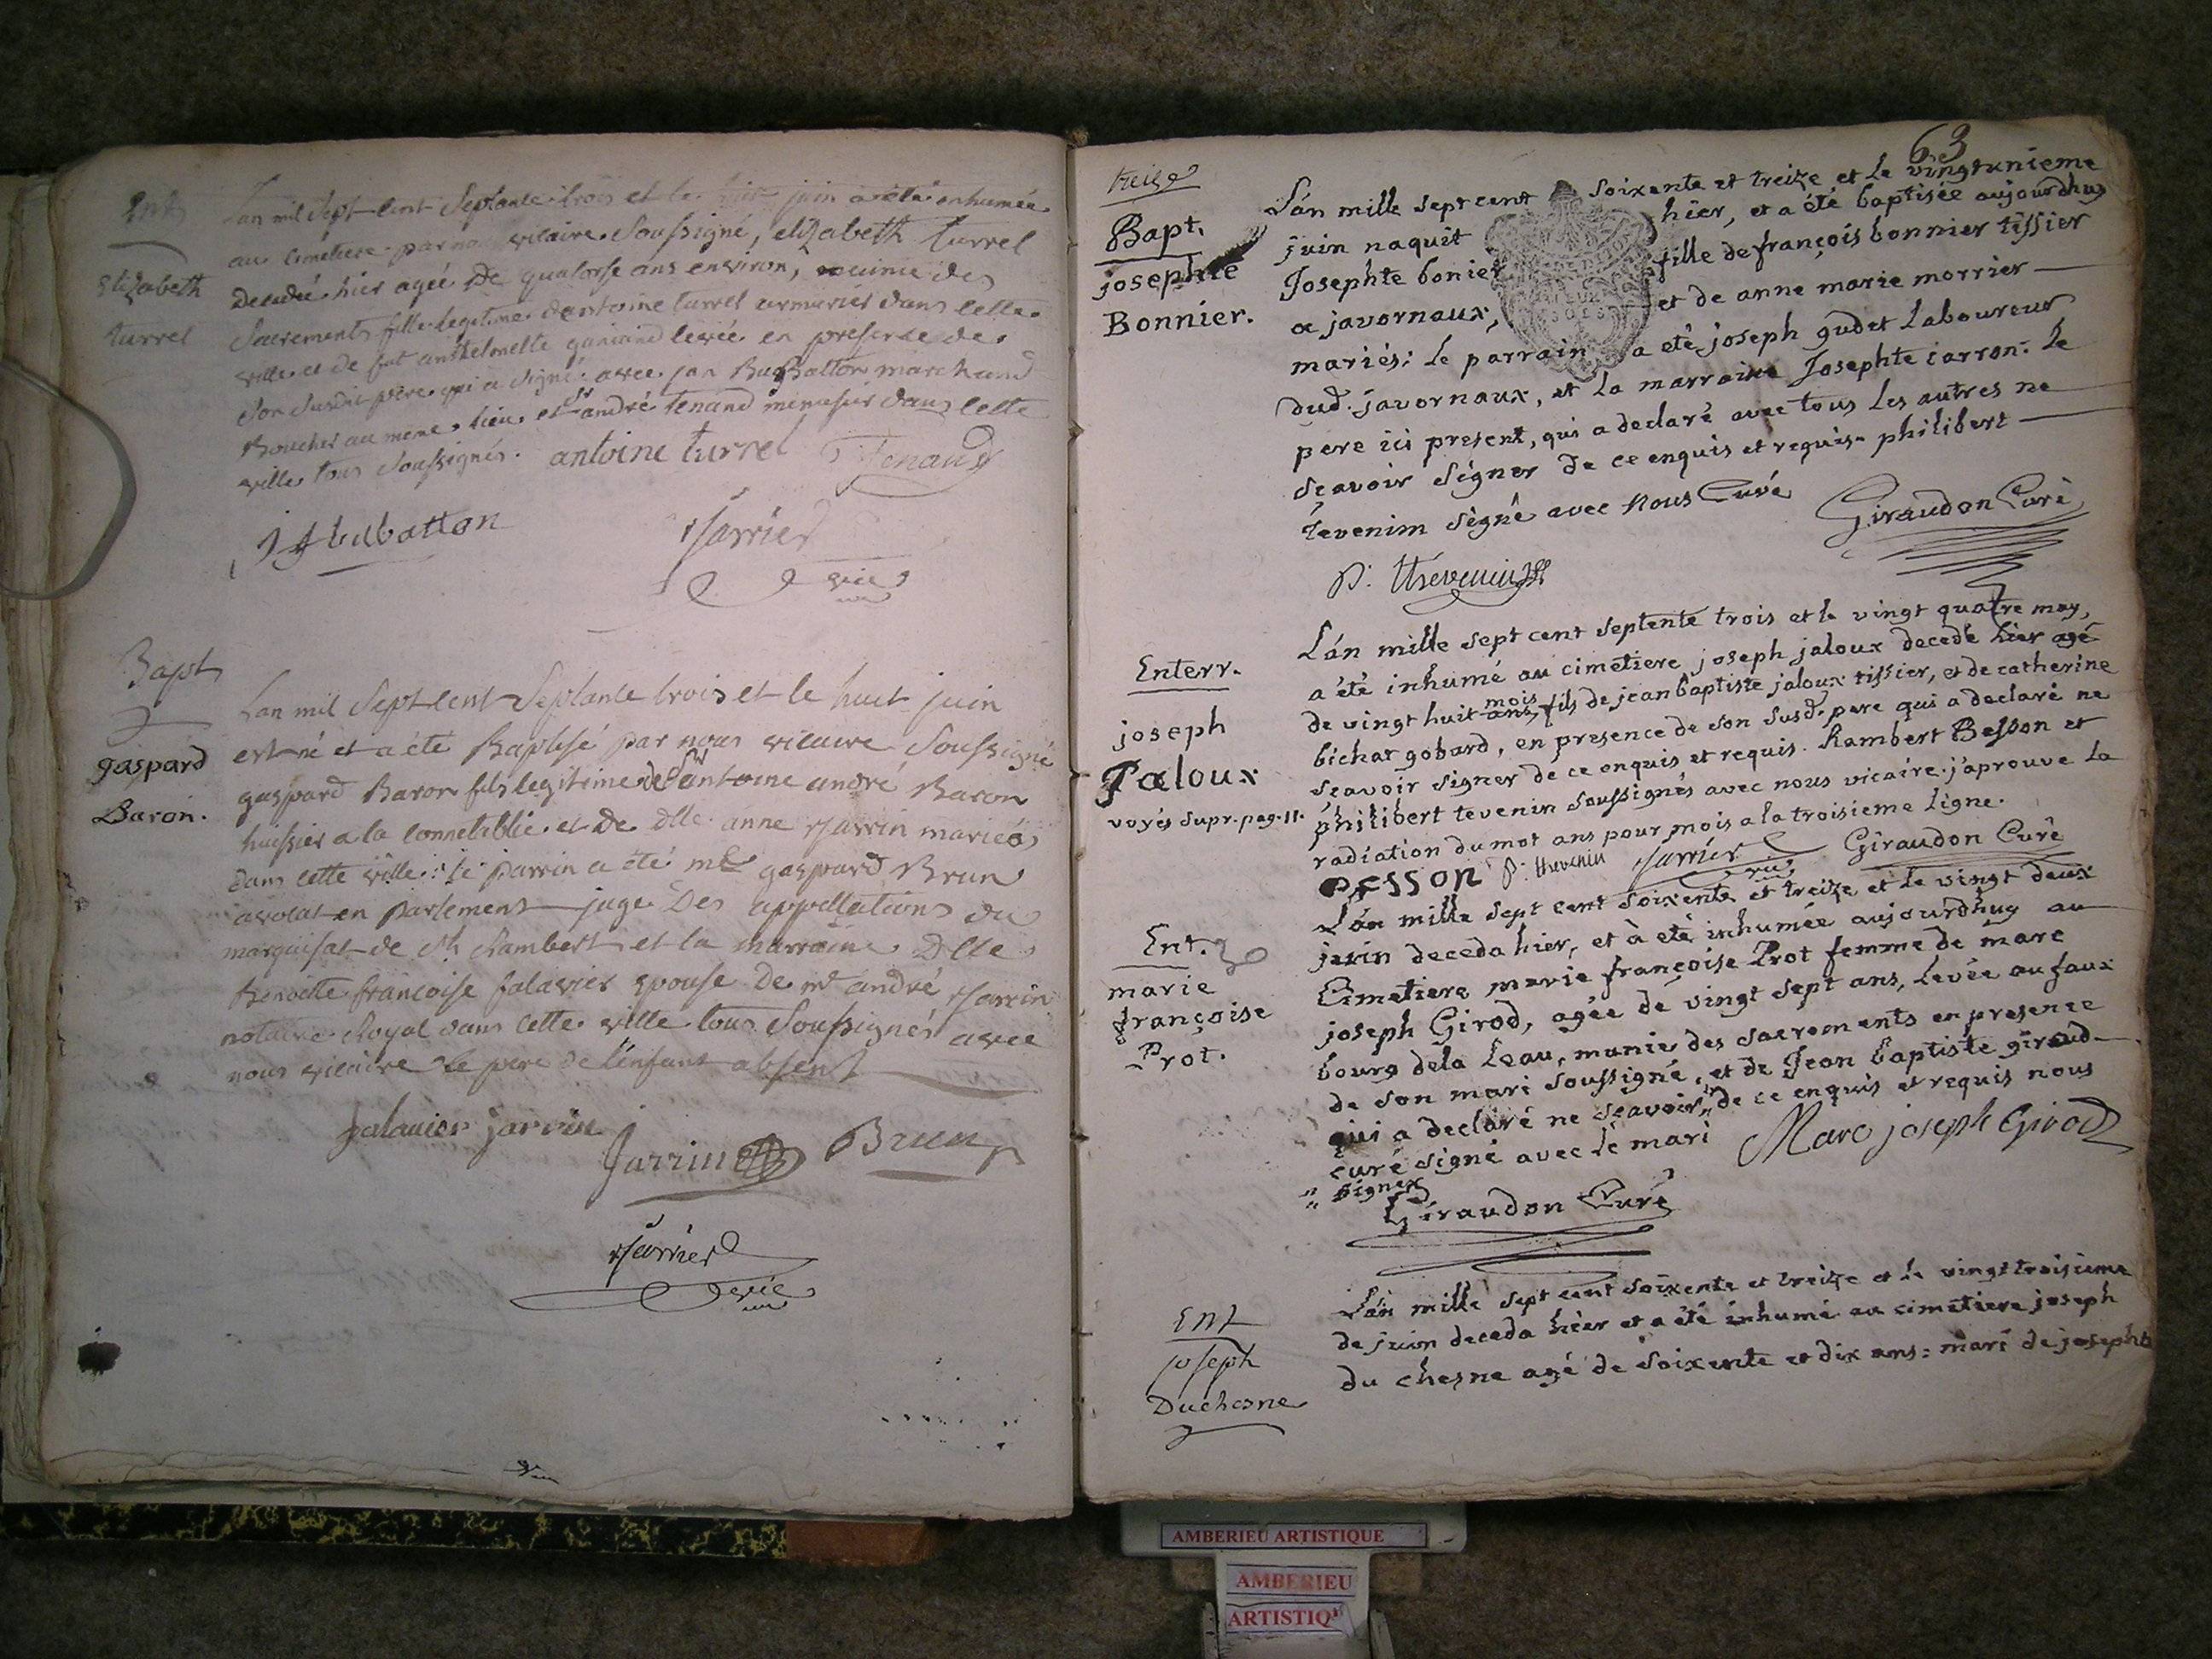 Ent
Elizabeth
turrel
Lan mil Sept Cent Septante trois et le huit juin a été inhumée
au Cimetiere par nous vicaire Soussigné, elizabeth turrel
decedée hier agée de quatorse ans environ, munie des
Sacrements fille legitime dantoine turrel armurier dans cette
ville et de fut anthelmette levée en presence de
Son Susdit pere qui a signé avec jan BuBatton marchand
Boucher au meme lieu et Sr andré tenand menusier dans cette
ville tous Soussignés. antoine turrel Tenand
J A bubatton Jarrier
vic
Bapt
gaspard
Baron.
Lan mil Sept Cent Septante trois et le huit juin
est né et a été Baptisé par nous vicaire Soussigné
gaspard Baron fils legitime de Sr antoine andré Baron
huissier a la connetablie et de dlle anne Jarrin mariés
dans cette ville: le parrin a été me gaspard Brun
avocat en Parlement juge Des appellations du
marquisat de St Rambert et la marraine Dlle
Benoitte francoise falavier epouse De me andré Jarrin
notaire Royal dans cette ville tous Soussignés avec
nous vicaire le pere de l'enfant absent
falavier jarrin
Jarrin Brun
Jarrier
vic
63
treize
Bapt.
josephte
Bonnier.
L'an mille sept cent soixente et treize et le vingtunieme
juin naquit hier, et a été baptisée aujourdhuy
Josephte bonier fille de françois bonnier tissier
a javornaux, et de anne marie morrier
mariés: le parrain a eté joseph gudet Laboureur
dud. javornaux, et la marraine Josephte carron. Le
pere ici present, qui a declaré avec tous les autres ne
sçavoir signer de ce enquis et requis. philibert
tevenim signé avec nous Curé Giraudon Curé
P. thevenin
Enterr.
joseph
Jaloux
voyés supr. pag. 11.
L'an mille sept cent septente trois et le vingt quatre may,
a été inhumé au cimetiere joseph jaloux decedé hier agé
de vingt huit ans mois, fils de jean baptiste jaloux tissier, et de catherine
bichat gobard, en presence de son susd. pere qui a declaré ne
sçavoir signer de ce enquis et requis. Rambert Besson et
philibert tevenin soussignés avec nous vicaire. j'aprouve la
radiation du mot ans pour mois a la troisieme ligne.
Besson P. thevenin Jarrier vic Giraudon Curé
Ent.
marie
françoise
Prot.
L'an mille sept cent soixente et treize et le vingt deux
juin deceda hier, et à eté inhumée aujourdhuy au
Cimetiere marie françoise Prot femme de marc
joseph Girod, agée de vingt sept ans, levée au faux
bourg dela leau, munie des sacrements en presence
de son mari soussigné, et de Jean baptiste giroud
qui a declaré ne sçavoir " de ce enquis et requis nous
curé signé avec le mari Marc joseph Girod
" signer
Giraudon Curé
Ent
joseph
Duchesne
L'an mille sept cent soixente et treize et le vingt troisieme
de juin deceda hier et a été inhumé au cimetiere joseph
du chesne agé de soixente et dix ans: mari de josephte
AMBERIEU ARTISTIQUE
AMBERIEU
ARTISTIQ